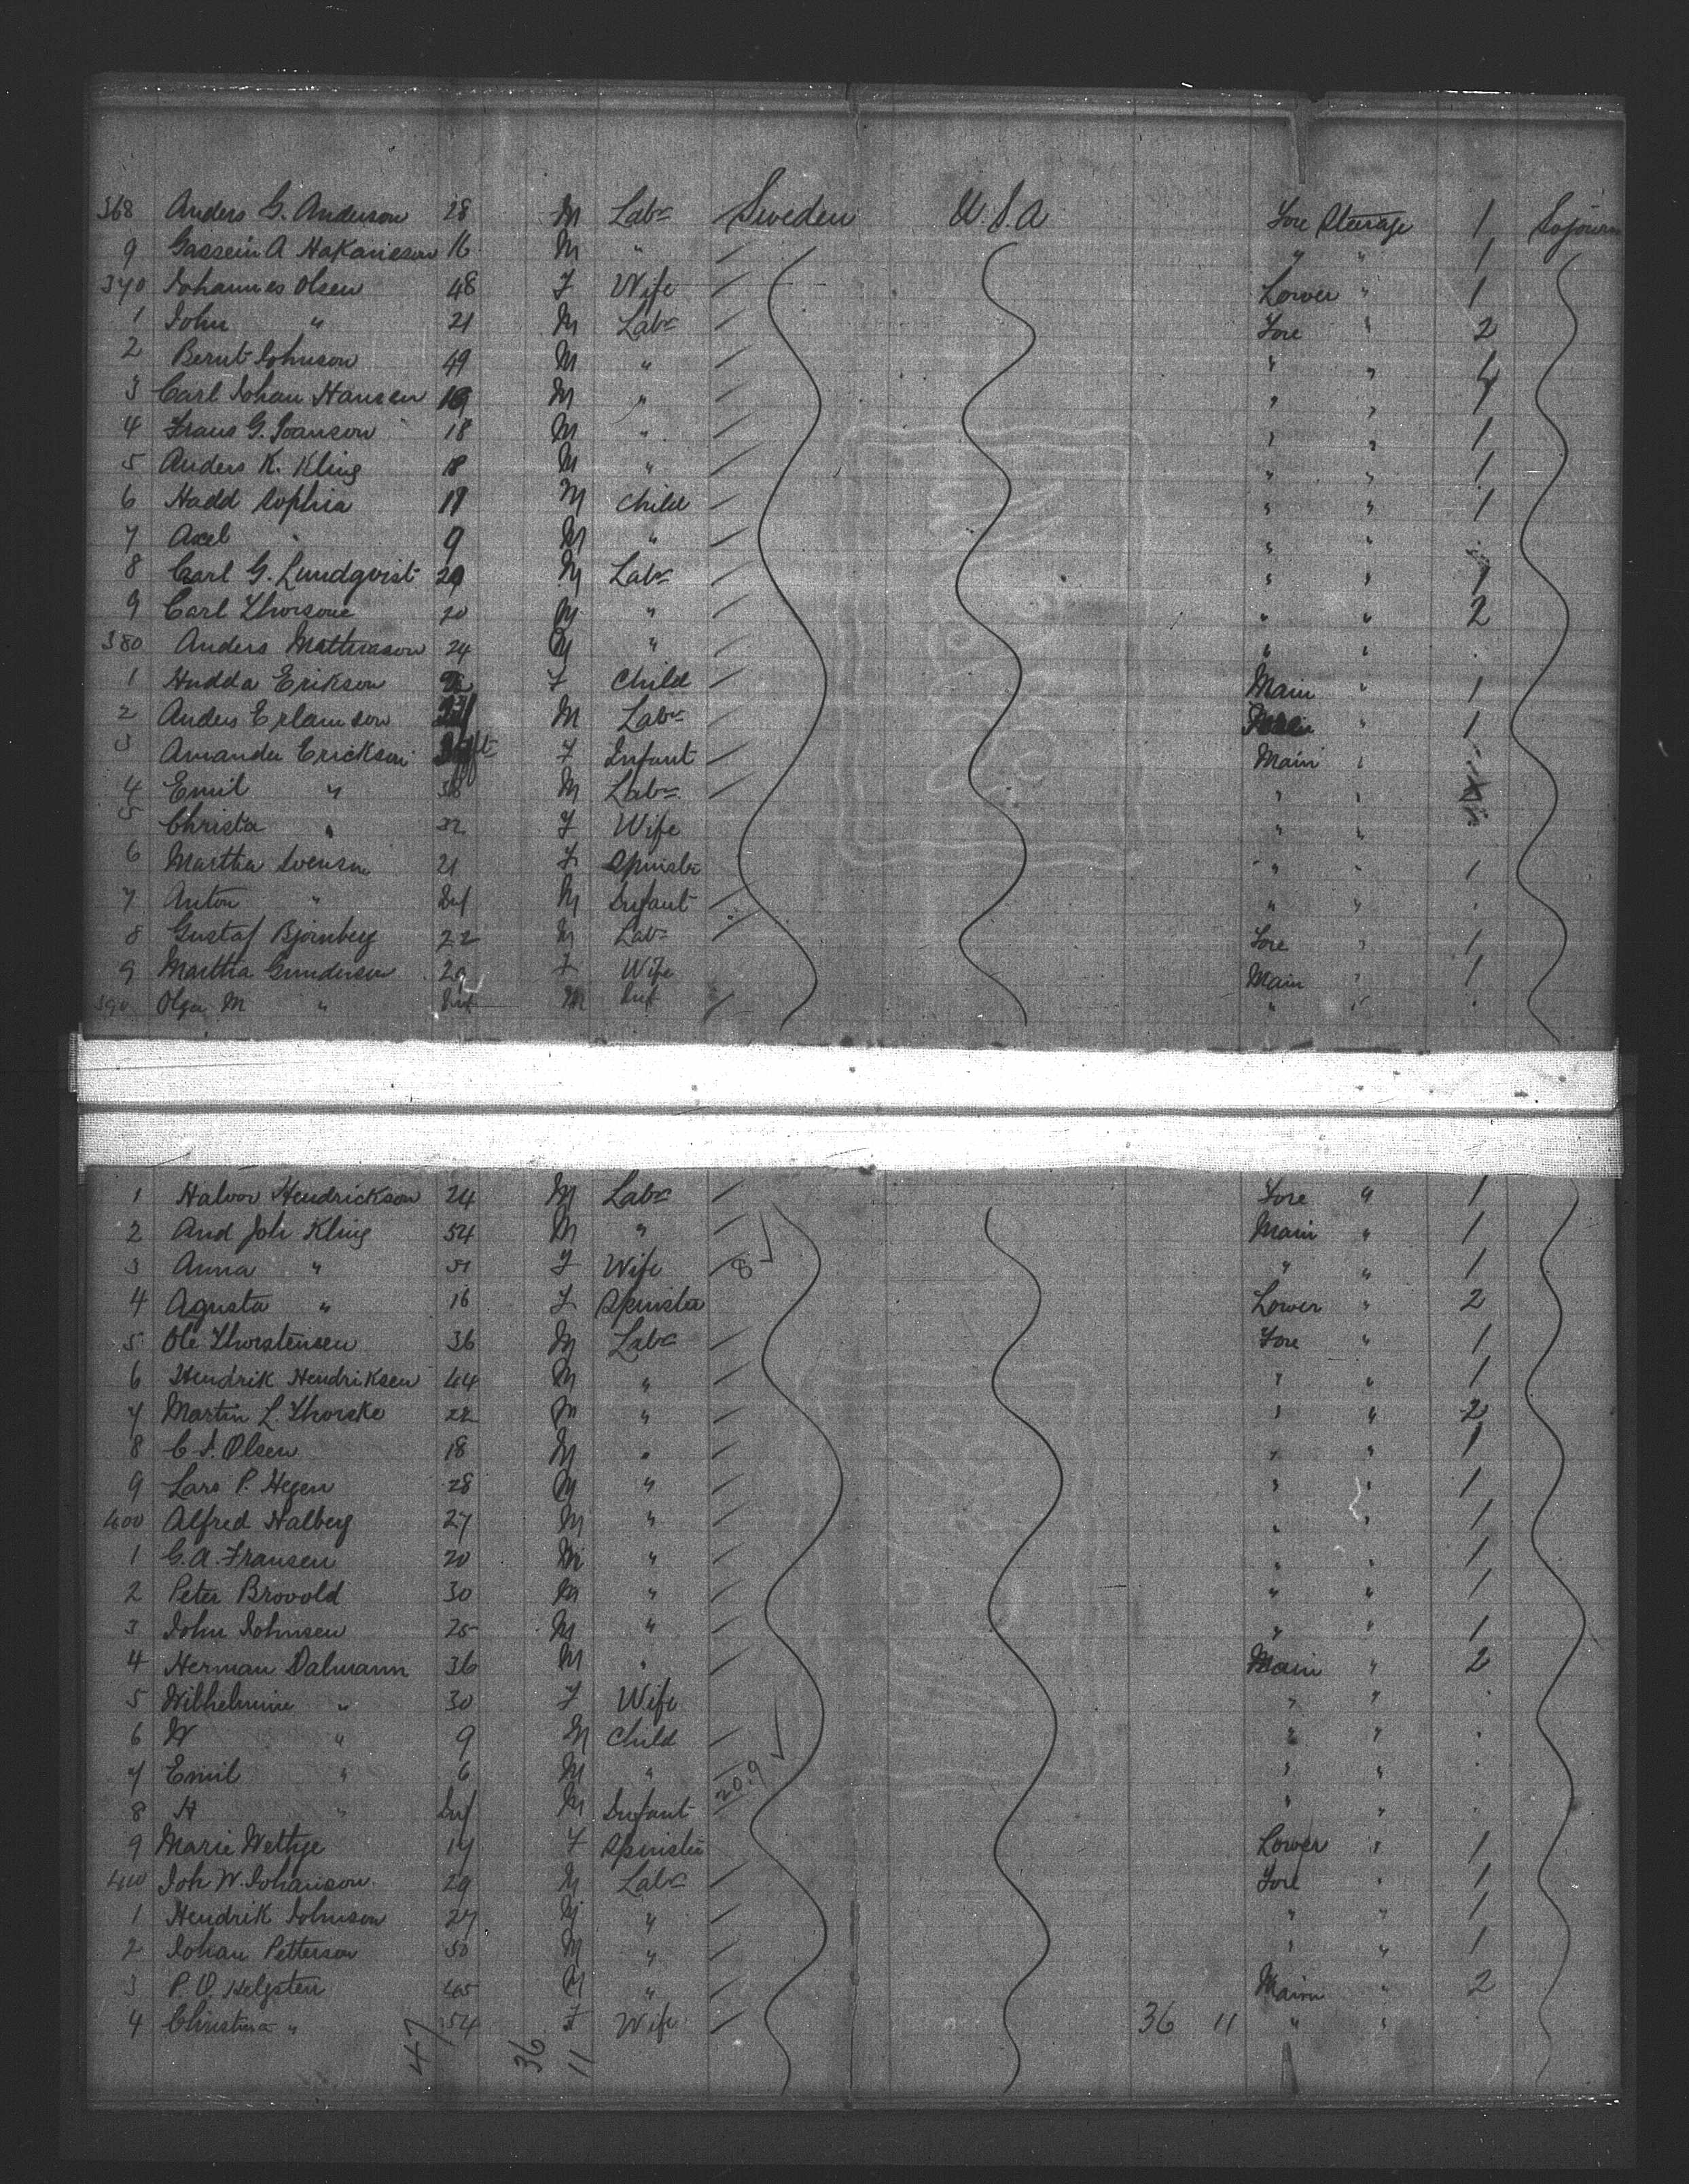 368 Anders G. Anderson 28 M Labr Sweden U.S.A Fore Steerage 1 Sojourn
9 A Hakanieson 16 M " " " 1
370 Johannes Olsen 48 F Wife Lower " 1
1 John " 21 M Labr Fore " 2
2 Bernt Johnson 49 M " " "
3 Carl Johan Hansen 19 M " " "
4 Frans G. Joanson 18 M " " " 1
5 Anders K. Kling 18 M " " " 1
6 Hadd Sophia 11 M Child " " 1
7 Axel " 9 M " " "
8 Carl G. Lundqvist 29 M Labr " " 1
9 Carl Thorsone 20 M " " " 2
380 Anders Mattheason 24 M " " "
1 Hudda Erikson F Child Main " 1
2 Anders Erlamson M Labr " 1
3 Amanda Erickson F Infant Main "
4 Emil " 38 M Labr " "
5 Christa " 32 F Wife " "
6 Martha Svensn 21 F Spinstr " " 1
7 Anton " Inf M Infant " "
8 Gustaf Bjornberg 22 M Labr Fore " 1
9 Martha Gunderson 29 F Wife Main " 1
390 Olga M " Inf M Inf " "
1 Halvor Hendrickson 24 M Labr Fore " 1
2 And Joh Kling 54 M " Main " 1
3 Anna " 51 F Wife 8 " " 1
4 Agusta " 16 F Spinster Lower " 2
5 Ole Thorstensen 36 M Labr Fore " 1
6 Hendrik Hendriksen 44 M " " " 1
7 Martin L. Thorske 22 M " " " 2
8 C.S. Olsen 18 M " " " 1
9 Lars P. Hegen 28 M " " " 1
400 Alfred Halberg 27 M " " " 1
1 C.A. Fransen 20 M " " " 1
2 Peter Brovold 30 M " " " 1
3 John Johnsen 25 M " " " 1
4 Herman Dalmann 36 M " Main " 2
5 Wilhelmine " 30 F Wife " "
6 W " 9 M Child " "
7 Emil " 6 M " 20.9 " "
8 H " Inf M Infant " "
9 Marie Wethje 17 F Spinster Lower " 1
410 Joh W. Johanson 29 M Labr Fore " 1
1 Hendrik Johnson 27 M " " " 1
2 Johan Petterson 50 M " " " 1
3 P.O. Helgsten 45 M " Main " 2
4 Christina " 54 F Wife 36 11 " "
47 36 11